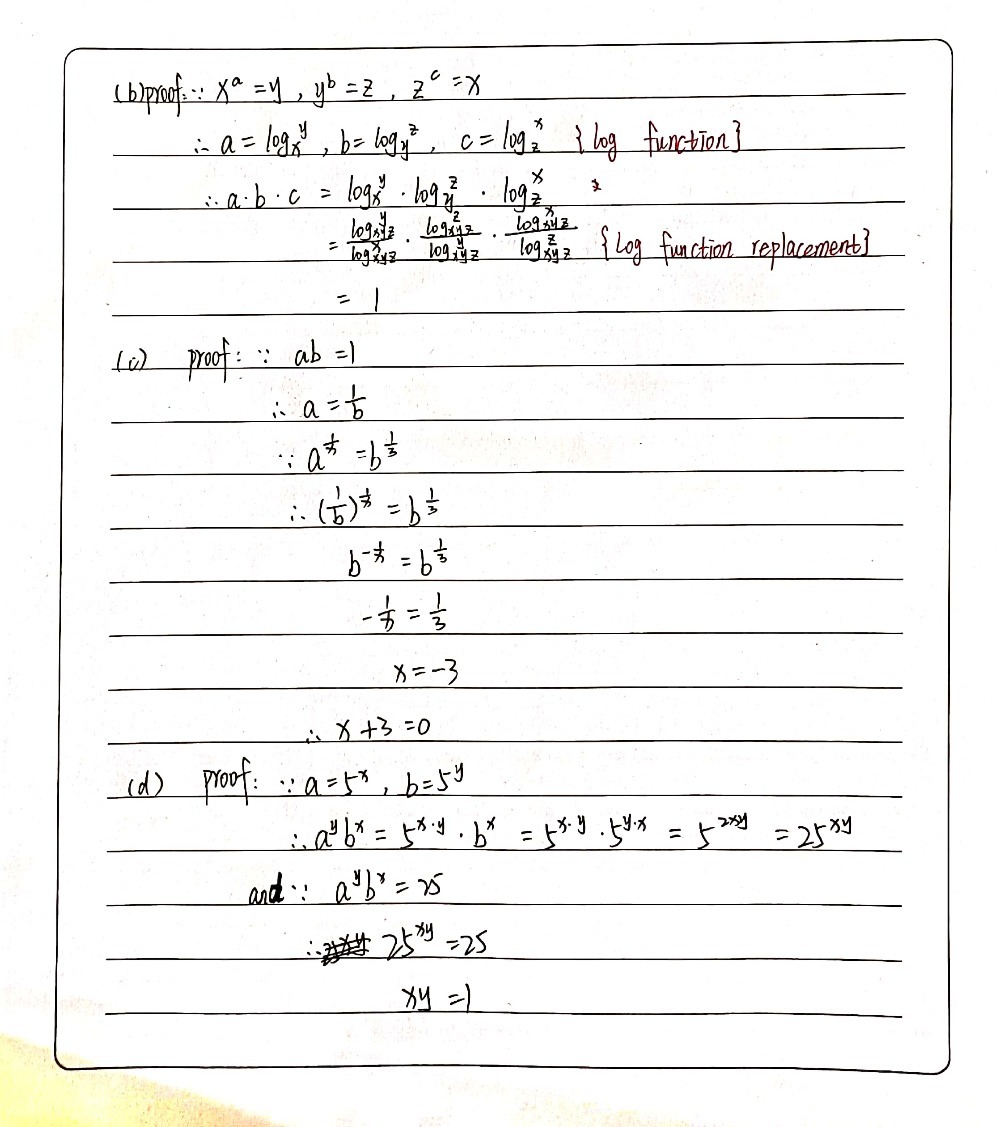 (b) proof: ∵ xᵃ = y , yᵇ = z , zᶜ = x
∴ a = logₓ^y , b = log_y^z , c = log_z^x {log function}
∴ a·b·c = logₓ^y · log_y^z · log_z^x
= log_xyz^y / log_xyz^x · log_xyz^z / log_xyz^y · log_xyz^x / log_xyz^z {log function replacement}
= 1
(c) proof: ∵ ab = 1
∴ a = 1/b
∵ a^(1/x) = b^(1/3)
∴ (1/b)^(1/x) = b^(1/3)
b^(-1/x) = b^(1/3)
-1/x = 1/3
x = -3
∴ x + 3 = 0
(d) proof: ∵ a = 5^x , b = 5^y
∴ a^y b^x = 5^(x·y) · b^x = 5^(x·y) · 5^(y·x) = 5^(2xy) = 25^(xy)
and ∵ a^y b^x = 25
∴ 25^(xy) = 25
xy = 1